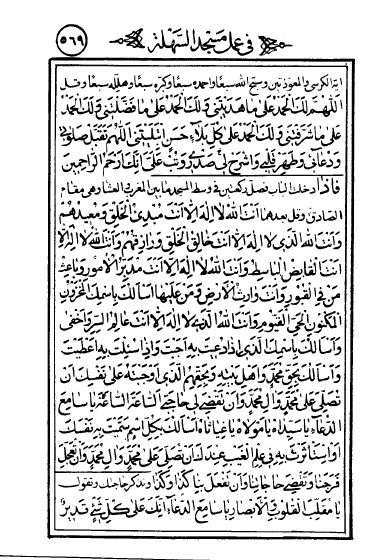 في عمل مسجد السهلة
٥٦٩
آية الكرسي والمعوذتين وسبّح الله سبعا واحمده سبعا وكبّره سبعا وهلله سبعا وقل
اللهم لك الحمد على ما هديتني ولك الحمد على ما فضلتني ولك الحمد
على ما شرفتني ولك الحمد على كل بلاء حسن ابتليتني اللهم تقبل صلوتي
ودعائي وطهر قلبي واشرح لي صدري وتب علي انك ارحم الراحمين
فاذا دخلت الباب فصل ركعتين في وسط المسجد ما بين المغرب والعشاء وهي مقام
الصادق وقل بعدها انت الله لا اله الا انت مبدئ الخلق ومعيدهم
وانت الله الذي لا اله الا انت خالق الخلق ورازقهم وانت الله لا اله الا
انت القابض الباسط وانت الله لا اله الا انت مدبر الامور وباعث
من في القبور وانت وارث الارض ومن عليها اسألك باسمك المخزون
المكنون الحي القيوم وانت الله الذي لا اله الا انت عالم السر واخفى
واسألك باسمك الذي اذا دعيت به اجبت واذا سئلت به اعطيت
واسألك بحق محمد واهل بيته وبحقهم الذي اوجبته على نفسك ان
تصلي على محمد وال محمد وان تقضي لي حاجتي الساعة الساعة يا سامع
الدعاء يا سيداه يا مولاه يا غياثاه اسألك بكل اسم سميت به نفسك
او استأثرت به في علم الغيب عندك ان تصلي على محمد وال محمد وان تعجل
فرجنا وتقضي حاجاتنا وان تفعل بنا كذا وكذا وتذكر حاجتك وتقول
يا مقلب القلوب والابصار يا سامع الدعاء انك على كل شئ قدير